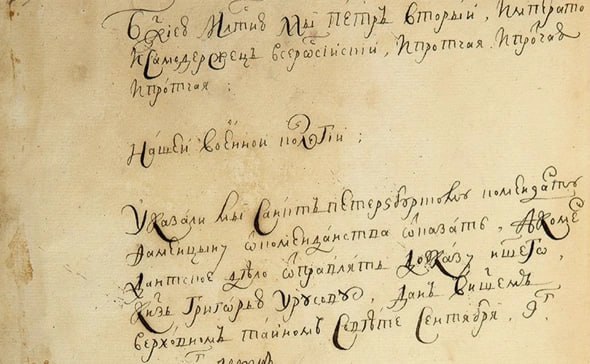 Бжиею Млтию Мы Петръ вторыи, Императо
и Самодержецъ всеросиіскіи, и протчая, и протчая
и протчая :
Нашеи военнои колегіи ;
Указали мы Санктъ петерзбургскому коменданту
от комендантства отказать, а коме
дантское дѣло отправлять до указу ншего
Кнзь Григорью Урусову, Данъ в ншемъ
верховномъ таиномъ Совѣте Сентября, 9г